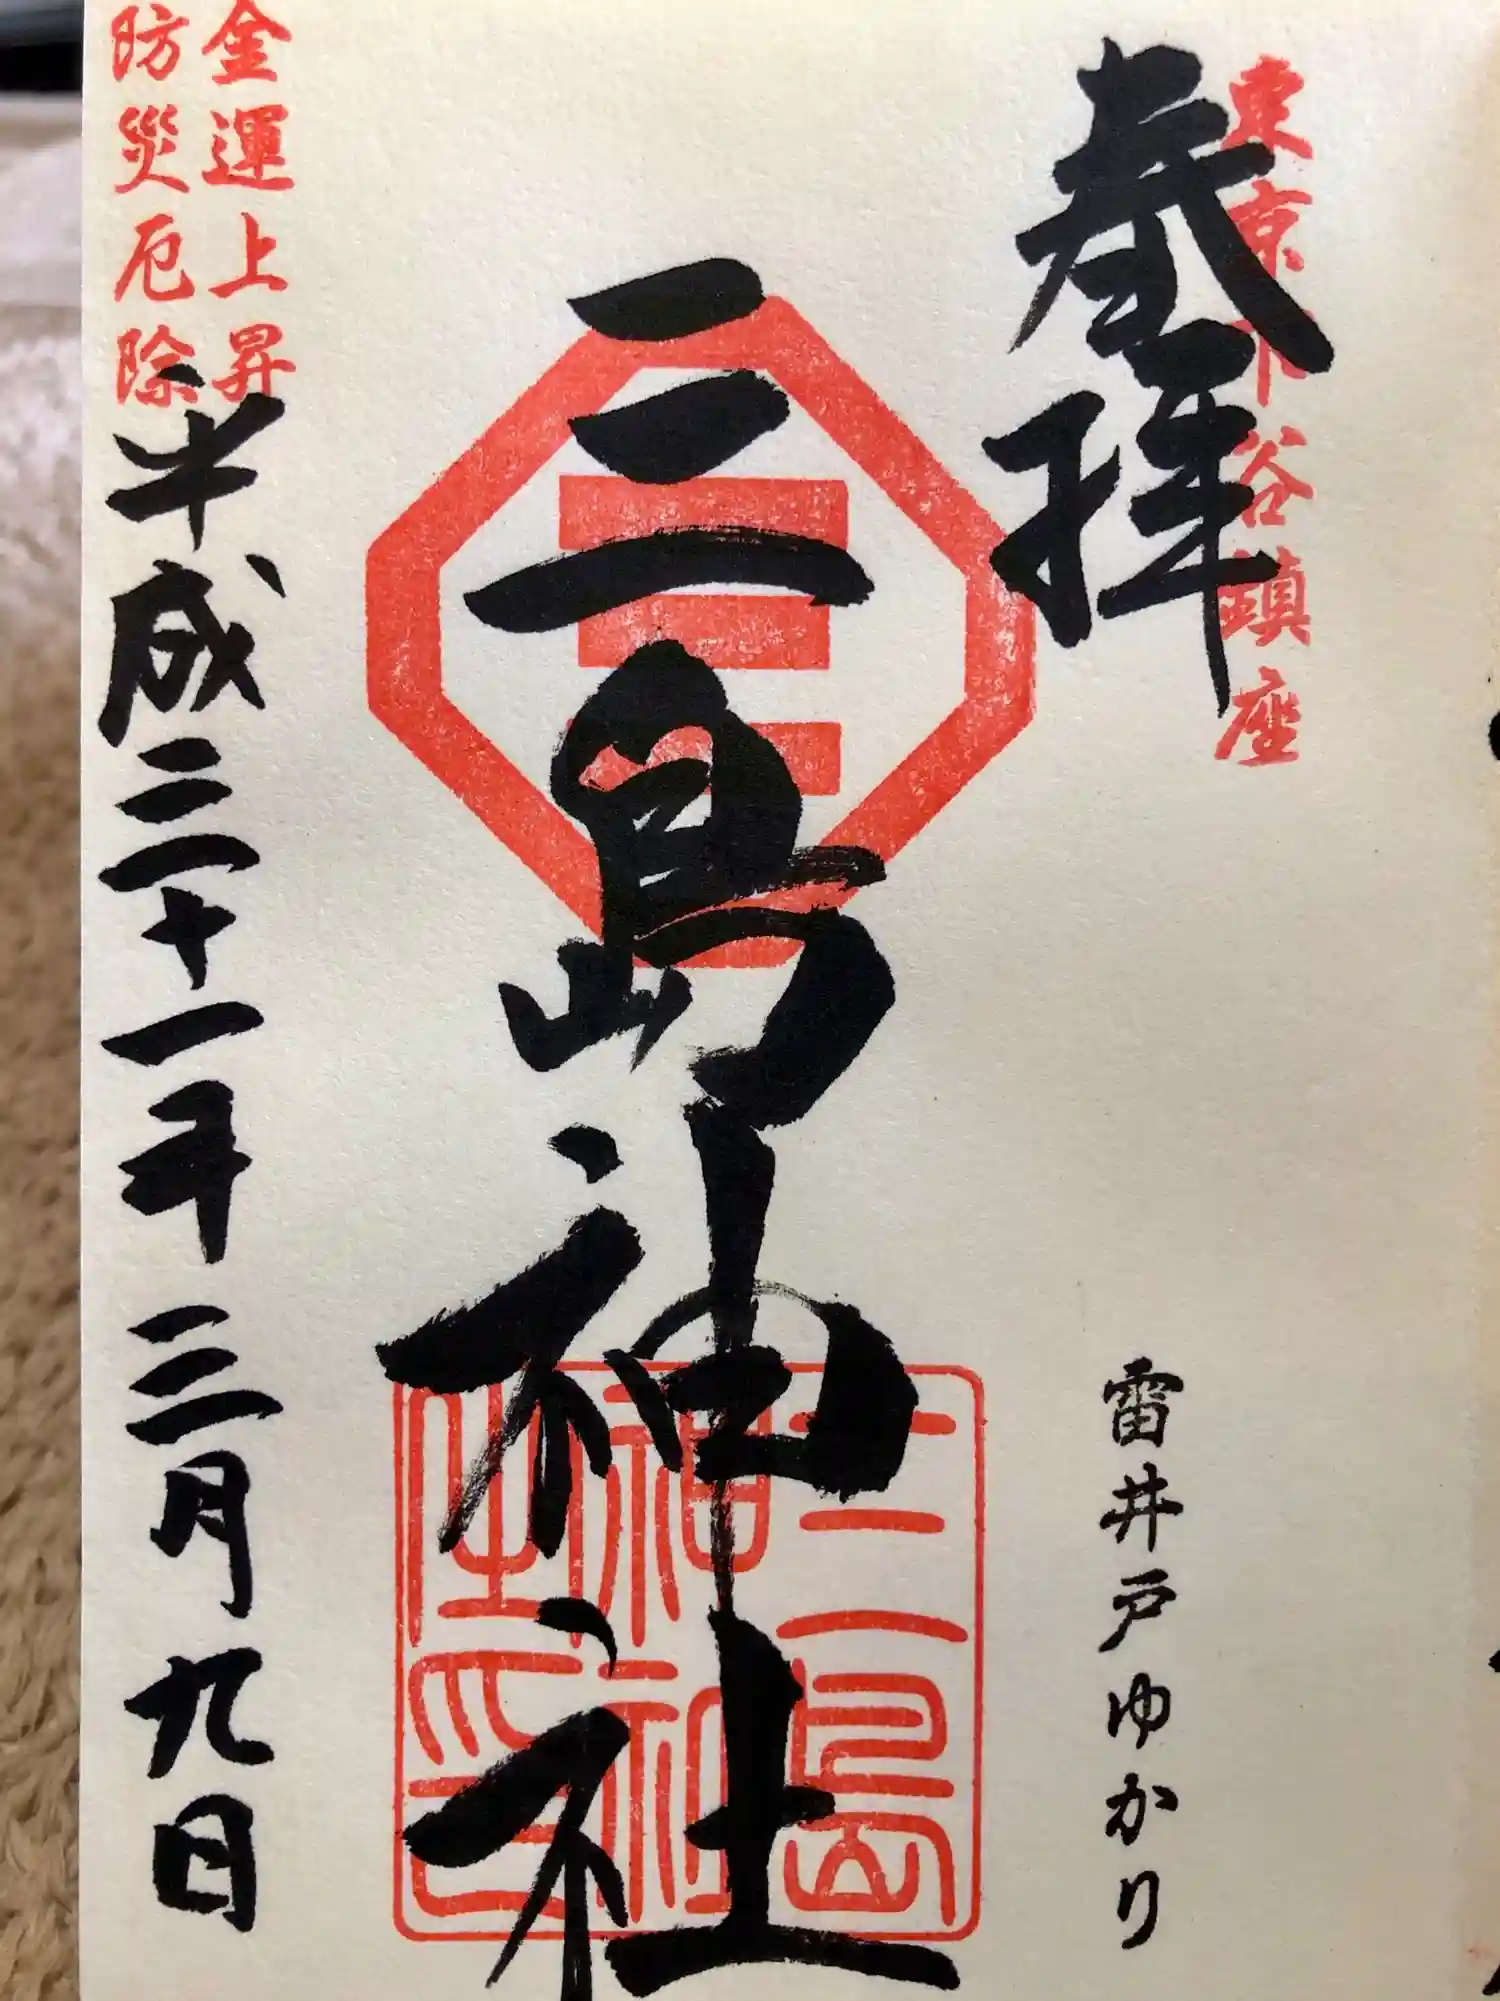 東京下谷鎮座
奉拝
雷井戸ゆかり
三島神社
三島
神社
之印
金運上昇
防災厄除
平成三十一年三月九日